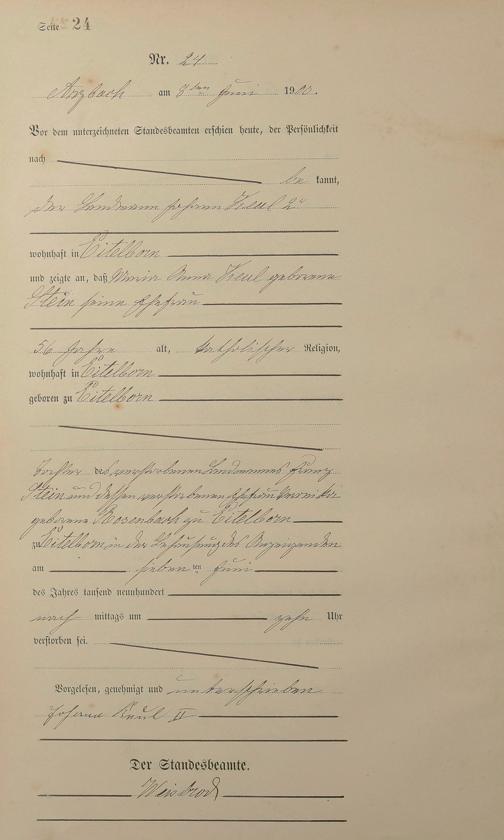 Seite 24
Nr. 24
Arzbach am 8ten Juni 1900.
Vor dem unterzeichneten Standesbeamten erschien heute, der Persönlichkeit
nach
be kannt,
der Landmann Johann Keul 2r
wohnhaft in Eitelborn
und zeigte an, daß Maria Anna Keul geborene
Stein seine Ehefrau
56 Jahre alt, katholischer Religion,
wohnhaft in Eitelborn
geboren zu Eitelborn
Tochter des verstorbenen Landmannes Franz
Stein und dessen verstorbenen Ehefrau
geborene Rosenbach zu Eitelborn
zu Eitelborn in der Behausung des Anzeigenden
am sieben ten Juni
des Jahres tausend neunhundert
nach mittags um zehn Uhr
verstorben sei.
Vorgelesen, genehmigt und unterschrieben
Johann Keul II
Der Standesbeamte.
Weisbrod